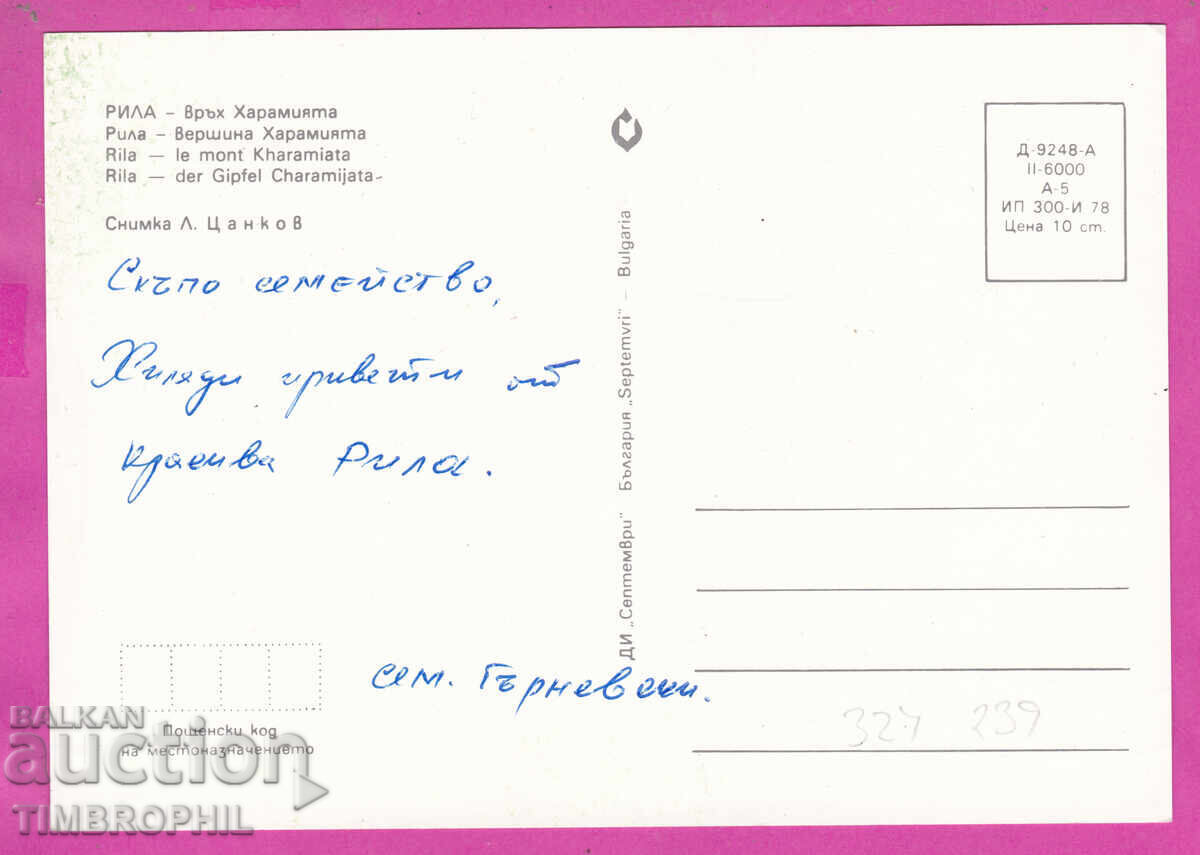 РИЛА – връх Харамията
Рила – вершина Харамията
Rila — le mont Kharamiata
Rila — der Gipfel Charamijata
Снимка Л. Цанков
Скъпо семейство,
Хиляди привети от
красива Рила.
сем. Гърневски.
Пощенски код
на местоназначението
ДИ „Септември" България „Septemvri" — Bulgaria
Д-9248-А
II-6000
А-5
ИП 300-И 78
Цена 10 ст.
327 239
BALKAN
auction
TIMBROPHIL